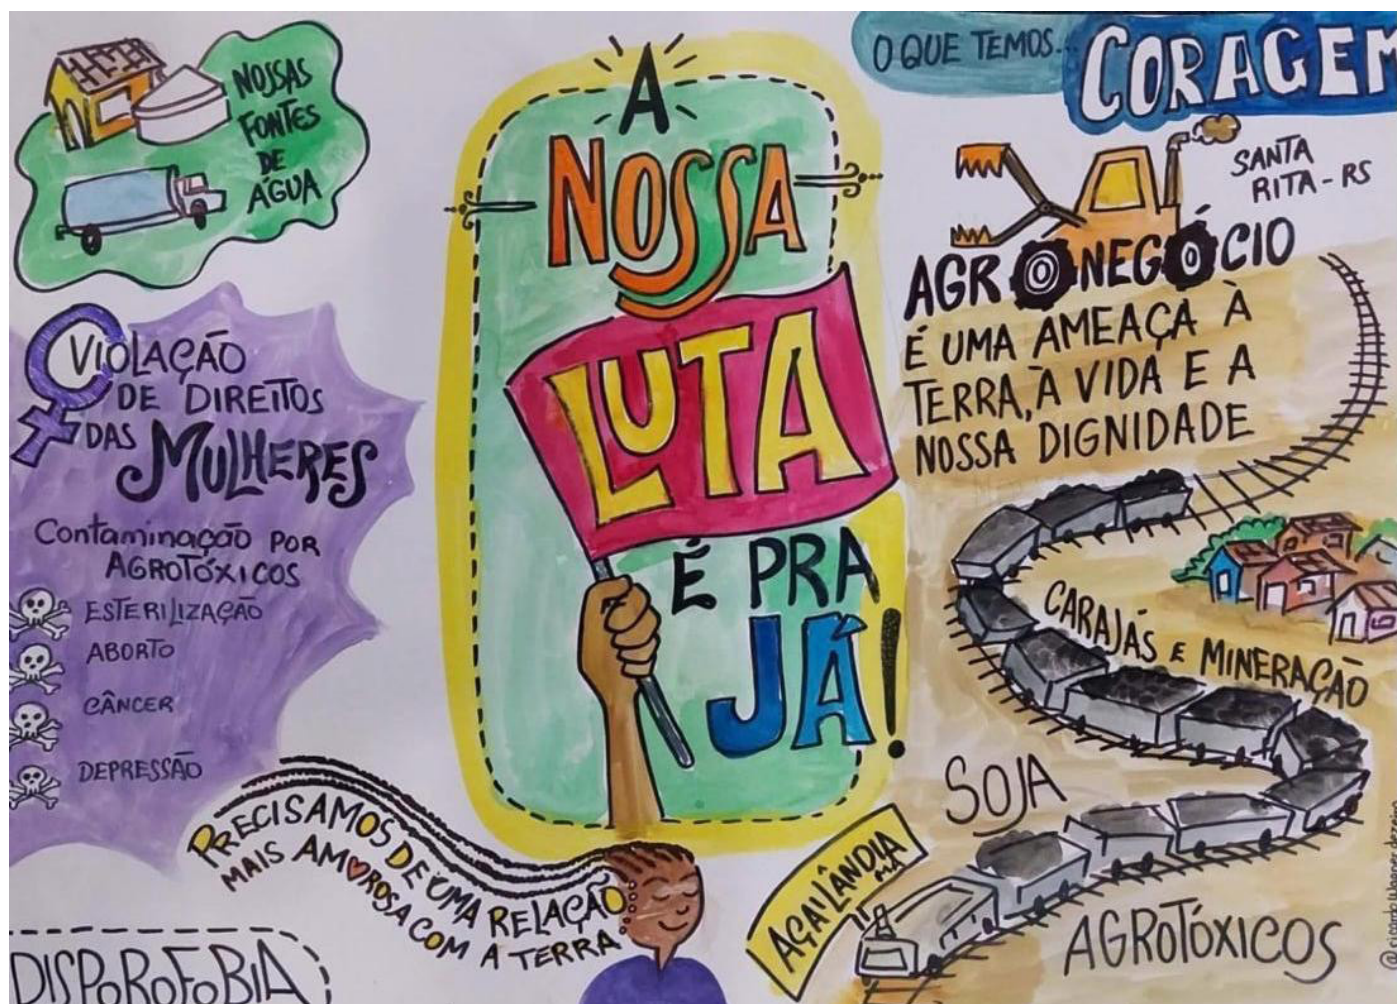 NOSSAS
FONTES
DE
ÁGUA
VIOLAÇÃO
DE DIREITOS
DAS MULHERES
Contaminação POR
AGROTÓXICOS
ESTERILIZAÇÃO
ABORTO
CÂNCER
DEPRESSÃO
DISPOROFOBIA
A
NOSSA
LUTA
É PRA
JÁ!
PRECISAMOS DE UMA RELAÇÃO
MAIS AMOROSA COM A TERRA
O QUE TEMOS...
CORAGEM
SANTA
RITA - RS
AGRONEGÓCIO
É UMA AMEAÇA À
TERRA, À VIDA E A
NOSSA DIGNIDADE
CARAJÁS E MINERAÇÃO
SOJA
AÇAILÂNDIA
MA
AGROTÓXICOS